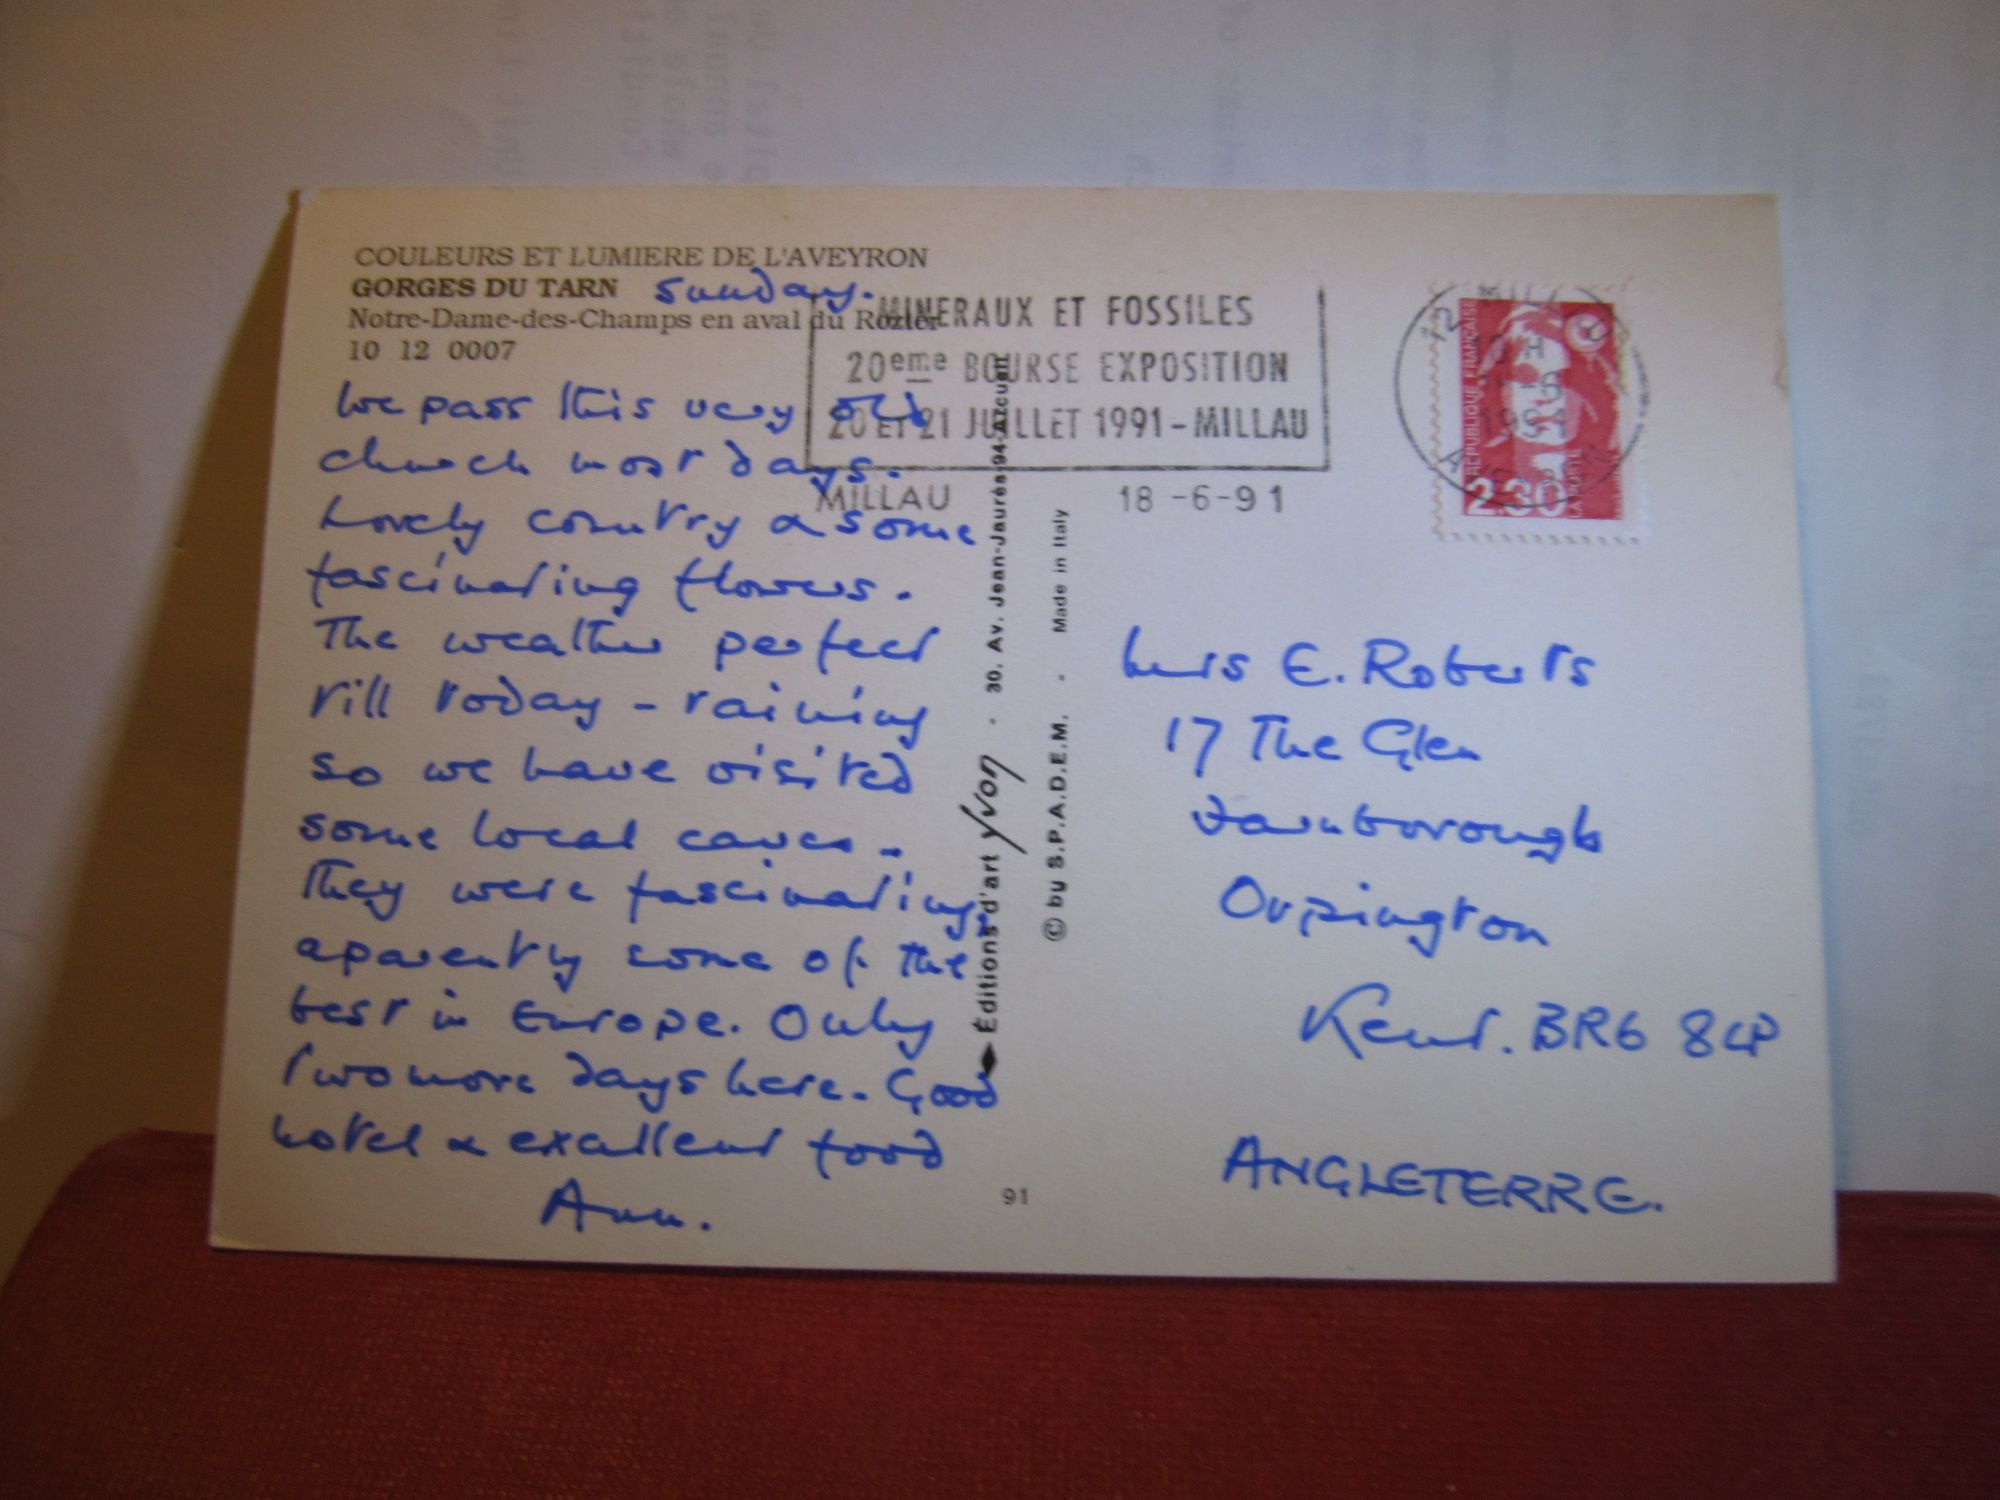 COULEURS ET LUMIERE DE L'AVEYRON
GORGES DU TARN
Notre-Dame-des-Champs en aval du Rozier
10 12 0007
Sunday.
We pass this very old
church most days.
Lovely country & some
fascinating flowers.
The weather perfect
till today - raining
so we have visited
some local caves -
They were fascinating,
aparently some of the
best in Europe. Only
two more days here. Good
hotel & excellent food
Ann.
MINERAUX ET FOSSILES
20eme BOURSE EXPOSITION
20 ET 21 JUILLET 1991 - MILLAU
MILLAU 18 -6-91
REPUBLIQUE FRANÇAISE
2.30
LA POSTE
1991
Éditions d'art Yvon - 30, Av. Jean-Jaurès 94 Arcueil
© by S.P.A.D.E.M. - Made in Italy
Mrs E. Roberts
17 The Glen
Farnborough
Orpington
Kent. BR6 8LP
ANGLETERRE.
91